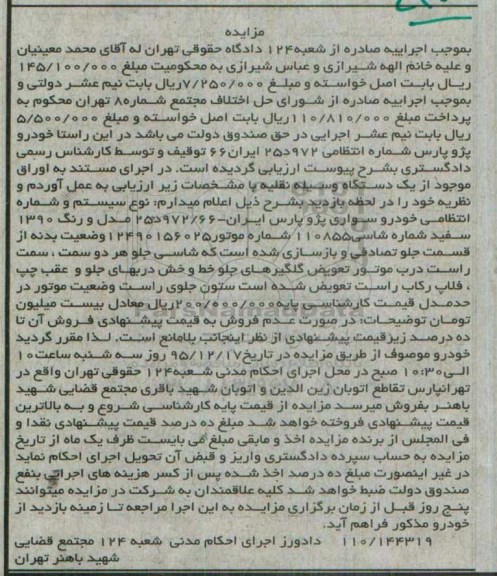 مزایده
بموجب اجراییه صادره از شعبه۱۲۴ دادگاه حقوقی تهران له آقای محمد معینیان
و علیه خانم الهه شیرازی و عباس شیرازی به محکومیت مبلغ ۱۴۵/۱۰۰/۰۰۰
ریال بابت اصل خواسته و مبلغ ۷/۲۵۰/۰۰۰ریال بابت نیم عشر دولتی و
بموجب اجراییه صادره از شورای حل اختلاف مجتمع شماره۸۰ تهران محکوم به
پرداخت مبلغ ۱۱۰/۸۱۰/۰۰۰ریال بابت اصل خواسته و مبلغ ۵/۵۰۰/۰۰۰
ریال بابت نیم عشر اجرایی در حق صندوق دولت می باشد در این راستا خودرو
پژو پارس شماره انتظامی ۹۷۲د۲۵ ایران۶۶ توقیف و توسط کارشناس رسمی
دادگستری بشرح پیوست ارزیابی گردیده است. در اجرای مستند به اوراق
موجود از یک دستگاه وسیله نقلیه با مشخصات زیر ارزیابی به عمل آوردم و
نظریه خود را در لحظه بازدید بشرح ذیل اعلام میدارم: نوع سیستم و شماره
انتظامی خودرو سواری پژو پارس ایران-۹۷۲/۶۶د۲۵ مدل و رنگ ۱۳۹۰
سفید شماره شاسی۱۱۰۸۵۵ شماره موتور۱۲۴۹۰۱۵۶۰۲۵وضعیت بدنه از
قسمت جلو تصادفی و بازسازی شده است که شاسی جلو هر دو سمت ، سمت
راست درب موتور تعویض گلگیرهای جلو خط و خش دربهای جلو و عقب چپ
، فلاپ رکاب راست تعویض شده است ستون جلوی راست وضعیت موتور در
حدمدل قیمت کارشناسی پایه۲۰۰/۰۰۰/۰۰۰ریال معادل بیست میلیون
تومان توضیحات: در صورت عدم فروش به قیمت پیشنهادی فروش آن تا
ده درصد زیرقیمت پیشنهادی از نظر اینجانب بلامانع است. لذا مقرر گردید
خودرو موصوف از طریق مزایده در تاریخ۹۵/۱۲/۱۷ روز سه شنبه ساعت۱۰
الی۱۰:۳۰ صبح در محل اجرای احکام مدنی شعبه۱۲۴ حقوقی تهران واقع در
تهرانپارس تقاطع اتوبان زین الدین و اتوبان شهید باقری مجتمع قضایی شهید
باهنر بفروش میرسد مزایده از قیمت پایه کارشناسی شروع و به بالاترین
قیمت پیشنهادی فروخته خواهد شد مبلغ ده درصد قیمت پیشنهادی نقدا و
فی المجلس از برنده مزایده اخذ و مابقی مبلغ می بایست ظرف یک ماه از تاریخ
مزایده به حساب سپرده دادگستری واریز و قبض آن تحویل اجرای احکام نماید
در غیر اینصورت مبلغ ده درصد اخذ شده پس از کسر هزینه های اجرائی بنفع
صندوق دولت ضبط خواهد شد کلیه علاقمندان به شرکت در مزایده میتوانند
پنج روز قبل از زمان برگزاری مزایده به این اجرا مراجعه تا زمینه بازدید از
خودرو مذکور فراهم آید.
۱۱۰/۱۴۴۳۱۹ دادورز اجرای احکام مدنی شعبه ۱۲۴ مجتمع قضایی
شهید باهنر تهران